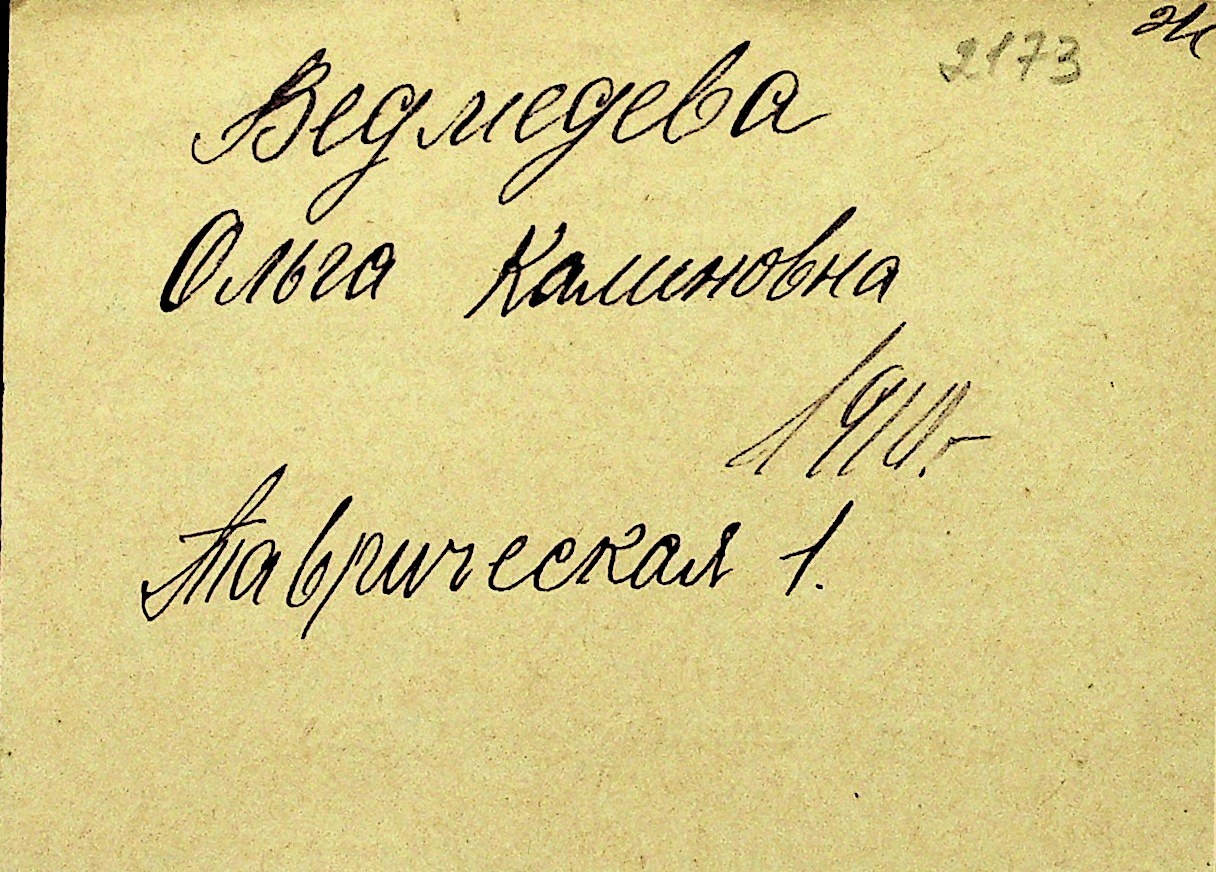 2173 ж
Ведмедева
Ольга Калиновна
1910г.
Таврическая 1.